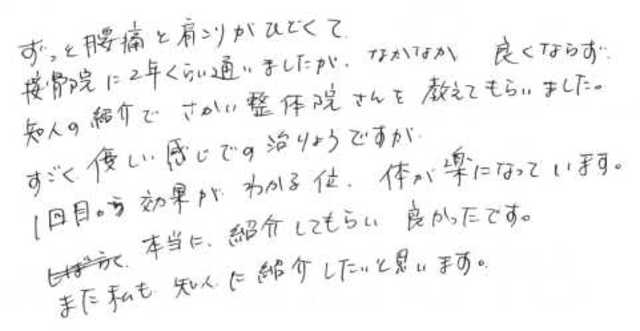 ずっと腰痛と肩こりがひどくて
接骨院に2年くらい通いましたが、なかなか 良くならず
知人の紹介で さかい整体院さんを 教えてもらいました。
すごく優しい感じでの治りょうですが
1回目から効果が わかる位、体が楽になっています。
本当に、紹介してもらい 良かったです。
また私も 知人に紹介したいと思います。